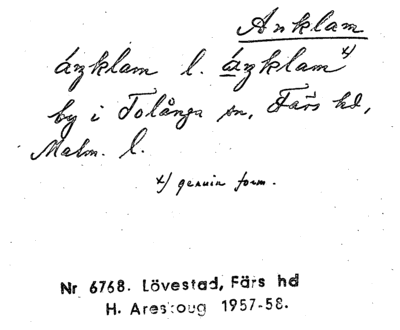 Anklam
áŋklam l. áŋklam x)
by i Tolånga sn, Färs hd,
Malm. l.
x) genuin form.
Nr 6768. Lövestad, Färs hd
H. Areskoug 1957-58.